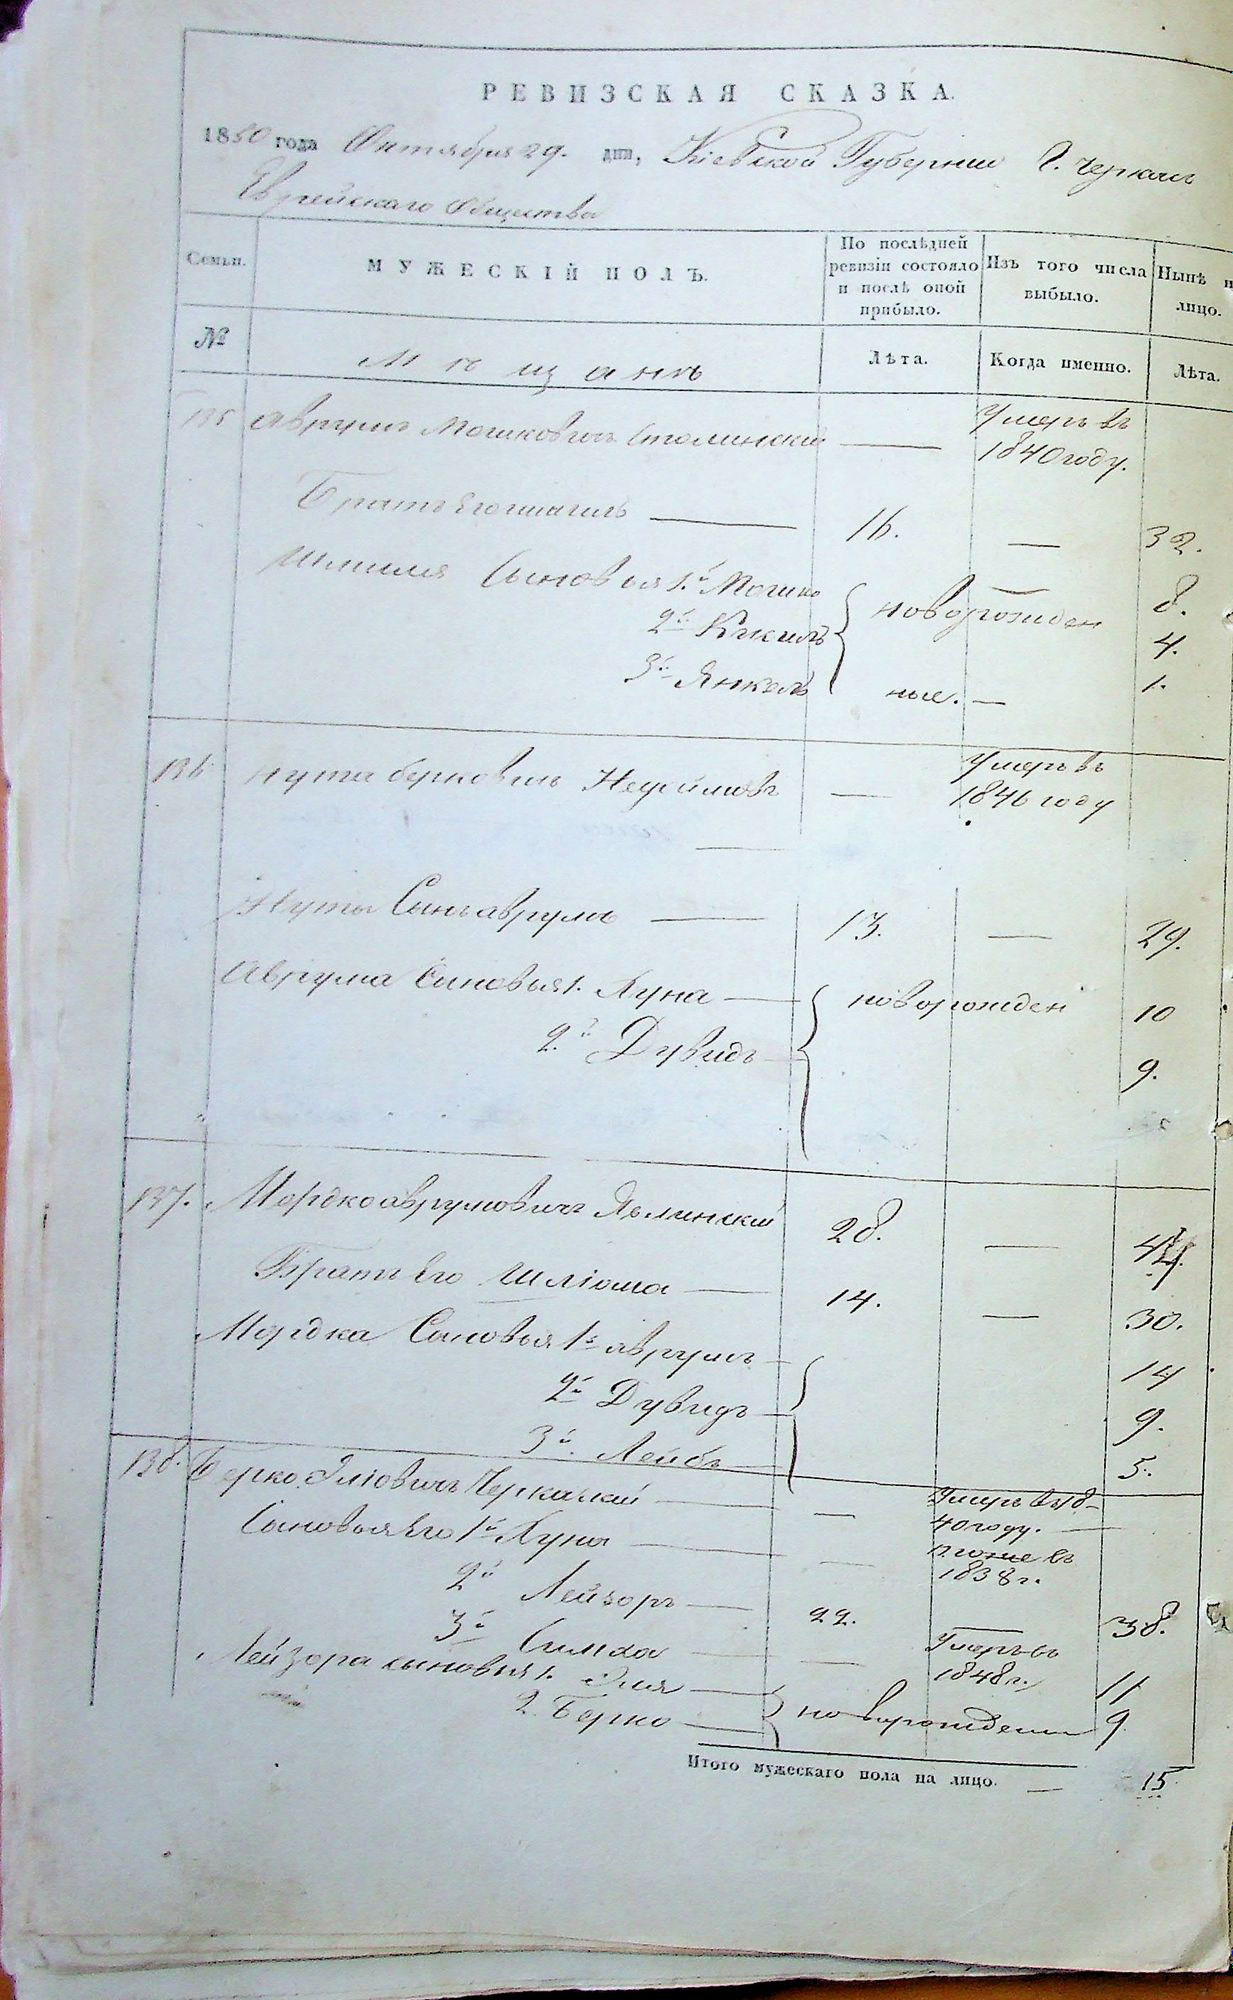 РЕВИЗСКАЯ СКАЗКА.
1850 года Октября 29. дня, Кіевской Губерніи Г. Черкасъ
Еврейскаго Общества
Семьи. МУЖЕСКІЙ ПОЛЪ. По послѣдней ревизіи состояло и послѣ оной прибыло. Изъ того числа выбыло. Нынѣ н лицо.
№ Мѣщанъ Лѣта. Когда именно. Лѣта.
135 Аврумъ Мошковичъ Столинскій — Умеръ въ 1840 году.
Братъ его — 16. — 32.
Сыновья 1.й Мошко новорожден 8.
2й 4.
3й Янкель ные. — 1.
136 Нута Берковичъ — Умеръ въ 1846 году
Нуты Сынъ Аврумъ — 13. — 29.
Аврума Сыновья 1. Хуна — новорожден 10
2.й Дувидъ 9.
137. Мордко Аврумовичъ 28. — 44.
Братъ его Шліома — 14. — 30.
Мордка Сыновья 1й Аврумъ 14
2й Дувидъ 9.
3й Лейбъ 5.
138. Берко Эліовичъ Черкаскій — — Умеръ въ 18-40 году. —
Сыновья его 1й Хуна — — тоже въ 1838 г.
2й Лейзоръ — 22. — 38.
3й Симха — — Умеръ въ 1848 г.
Лейзора сыновья 1. Эля — 11
2. Берко — новорожден 9
Итого мужескаго пола на лицо. — 15.